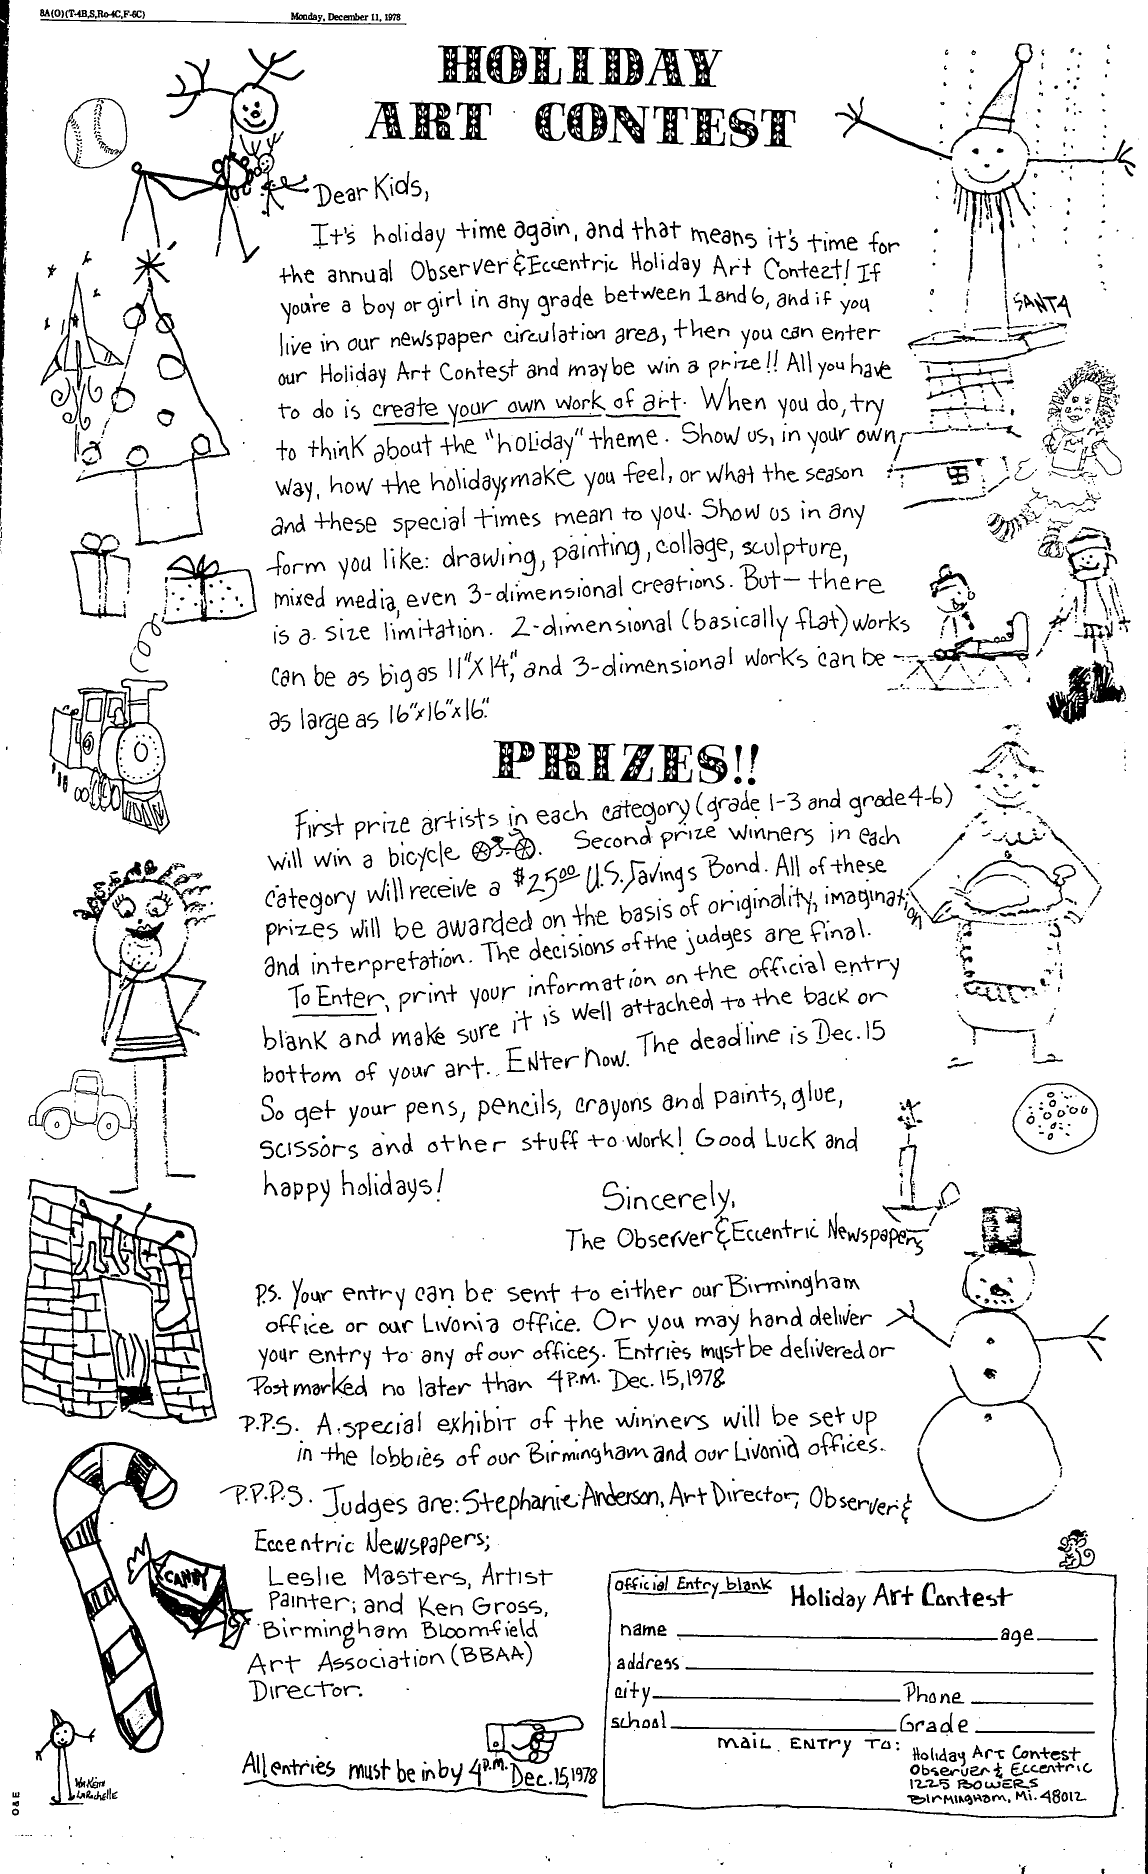 8A(O)(T-4B,S,Ro-4C,F-6C)
Monday, December 11, 1978
HOLIDAY
ART CONTEST
Dear Kids,
It's holiday time again, and that means it's time for
the annual Observer & Eccentric Holiday Art Contest! If
you're a boy or girl in any grade between 1 and 6, and if you
live in our newspaper circulation area, then you can enter
our Holiday Art Contest and maybe win a prize!! All you have
to do is create your own work of art. When you do, try
to think about the "holiday" theme. Show us, in your own
way, how the holidays make you feel, or what the season
and these special times mean to you. Show us in any
form you like: drawing, painting, collage, sculpture,
mixed media, even 3-dimensional creations. But— there
is a size limitation. 2-dimensional (basically flat) works
can be as big as 11"X14", and 3-dimensional works can be
as large as 16"x16"x16".
SANTA
PRIZES!!
First prize artists in each category (grade 1-3 and grade 4-6)
will win a bicycle. Second prize winners in each
category will receive a $25.00 U.S. Savings Bond. All of these
prizes will be awarded on the basis of originality, imagination
and interpretation. The decisions of the judges are final.
To Enter, print your information on the official entry
blank and make sure it is well attached to the back or
bottom of your art. Enter now. The deadline is Dec. 15
So get your pens, pencils, crayons and paints, glue,
scissors and other stuff to work! Good Luck and
happy holidays!
Sincerely,
The Observer & Eccentric Newspapers
P.S. Your entry can be sent to either our Birmingham
office or our Livonia office. Or you may hand deliver
your entry to any of our offices. Entries must be delivered or
Postmarked no later than 4 P.M. Dec. 15, 1978
P.P.S. A special exhibit of the winners will be set up
in the lobbies of our Birmingham and our Livonia offices.
P.P.P.S. Judges are: Stephanie Anderson, Art Director, Observer &
Eccentric Newspapers;
Leslie Masters, Artist
Painter; and Ken Gross,
Birmingham Bloomfield
Art Association (BBAA)
Director.
CANDY
All entries must be in by 4 P.M. Dec. 15, 1978
Official Entry blank Holiday Art Contest
name age
address
city Phone
school Grade
Mail Entry To: Holiday Art Contest
Observer & Eccentric
1225 BOWERS
Birmingham, Mi. 48012
LaRochelle
O & E